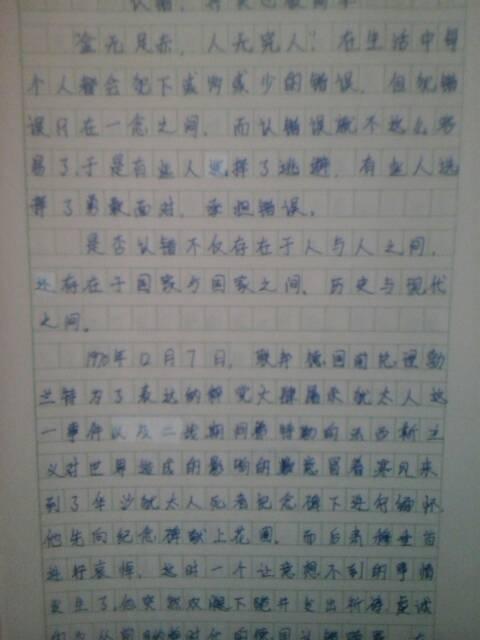 认错，
金无足赤，人无完人！在生活中每
个人都会犯下或多或少的错误，但犯错
误只在一念之间，而认错误就不这么容
易了于是有些人选择了逃避，有些人选
择了勇敢面对，承担错误。
是否认错不仅存在于人与人之间，
还存在于国家与国家之间、历史与现代
之间。
1970年12月7日，联邦德国前总理勃
兰特为了表达纳粹党大肆屠杀犹太人这
一事件以及二战期间希特勒的法西斯主
义对世界造成的影响的歉意冒着寒风来
到了华沙犹太人死者纪念碑下进行缅怀
他先向纪念碑献上花圈，而后肃穆垂首
进行哀悼，这时一个让意想不到的事情
发生了他突然双腿下跪并发出祈祷虔诚